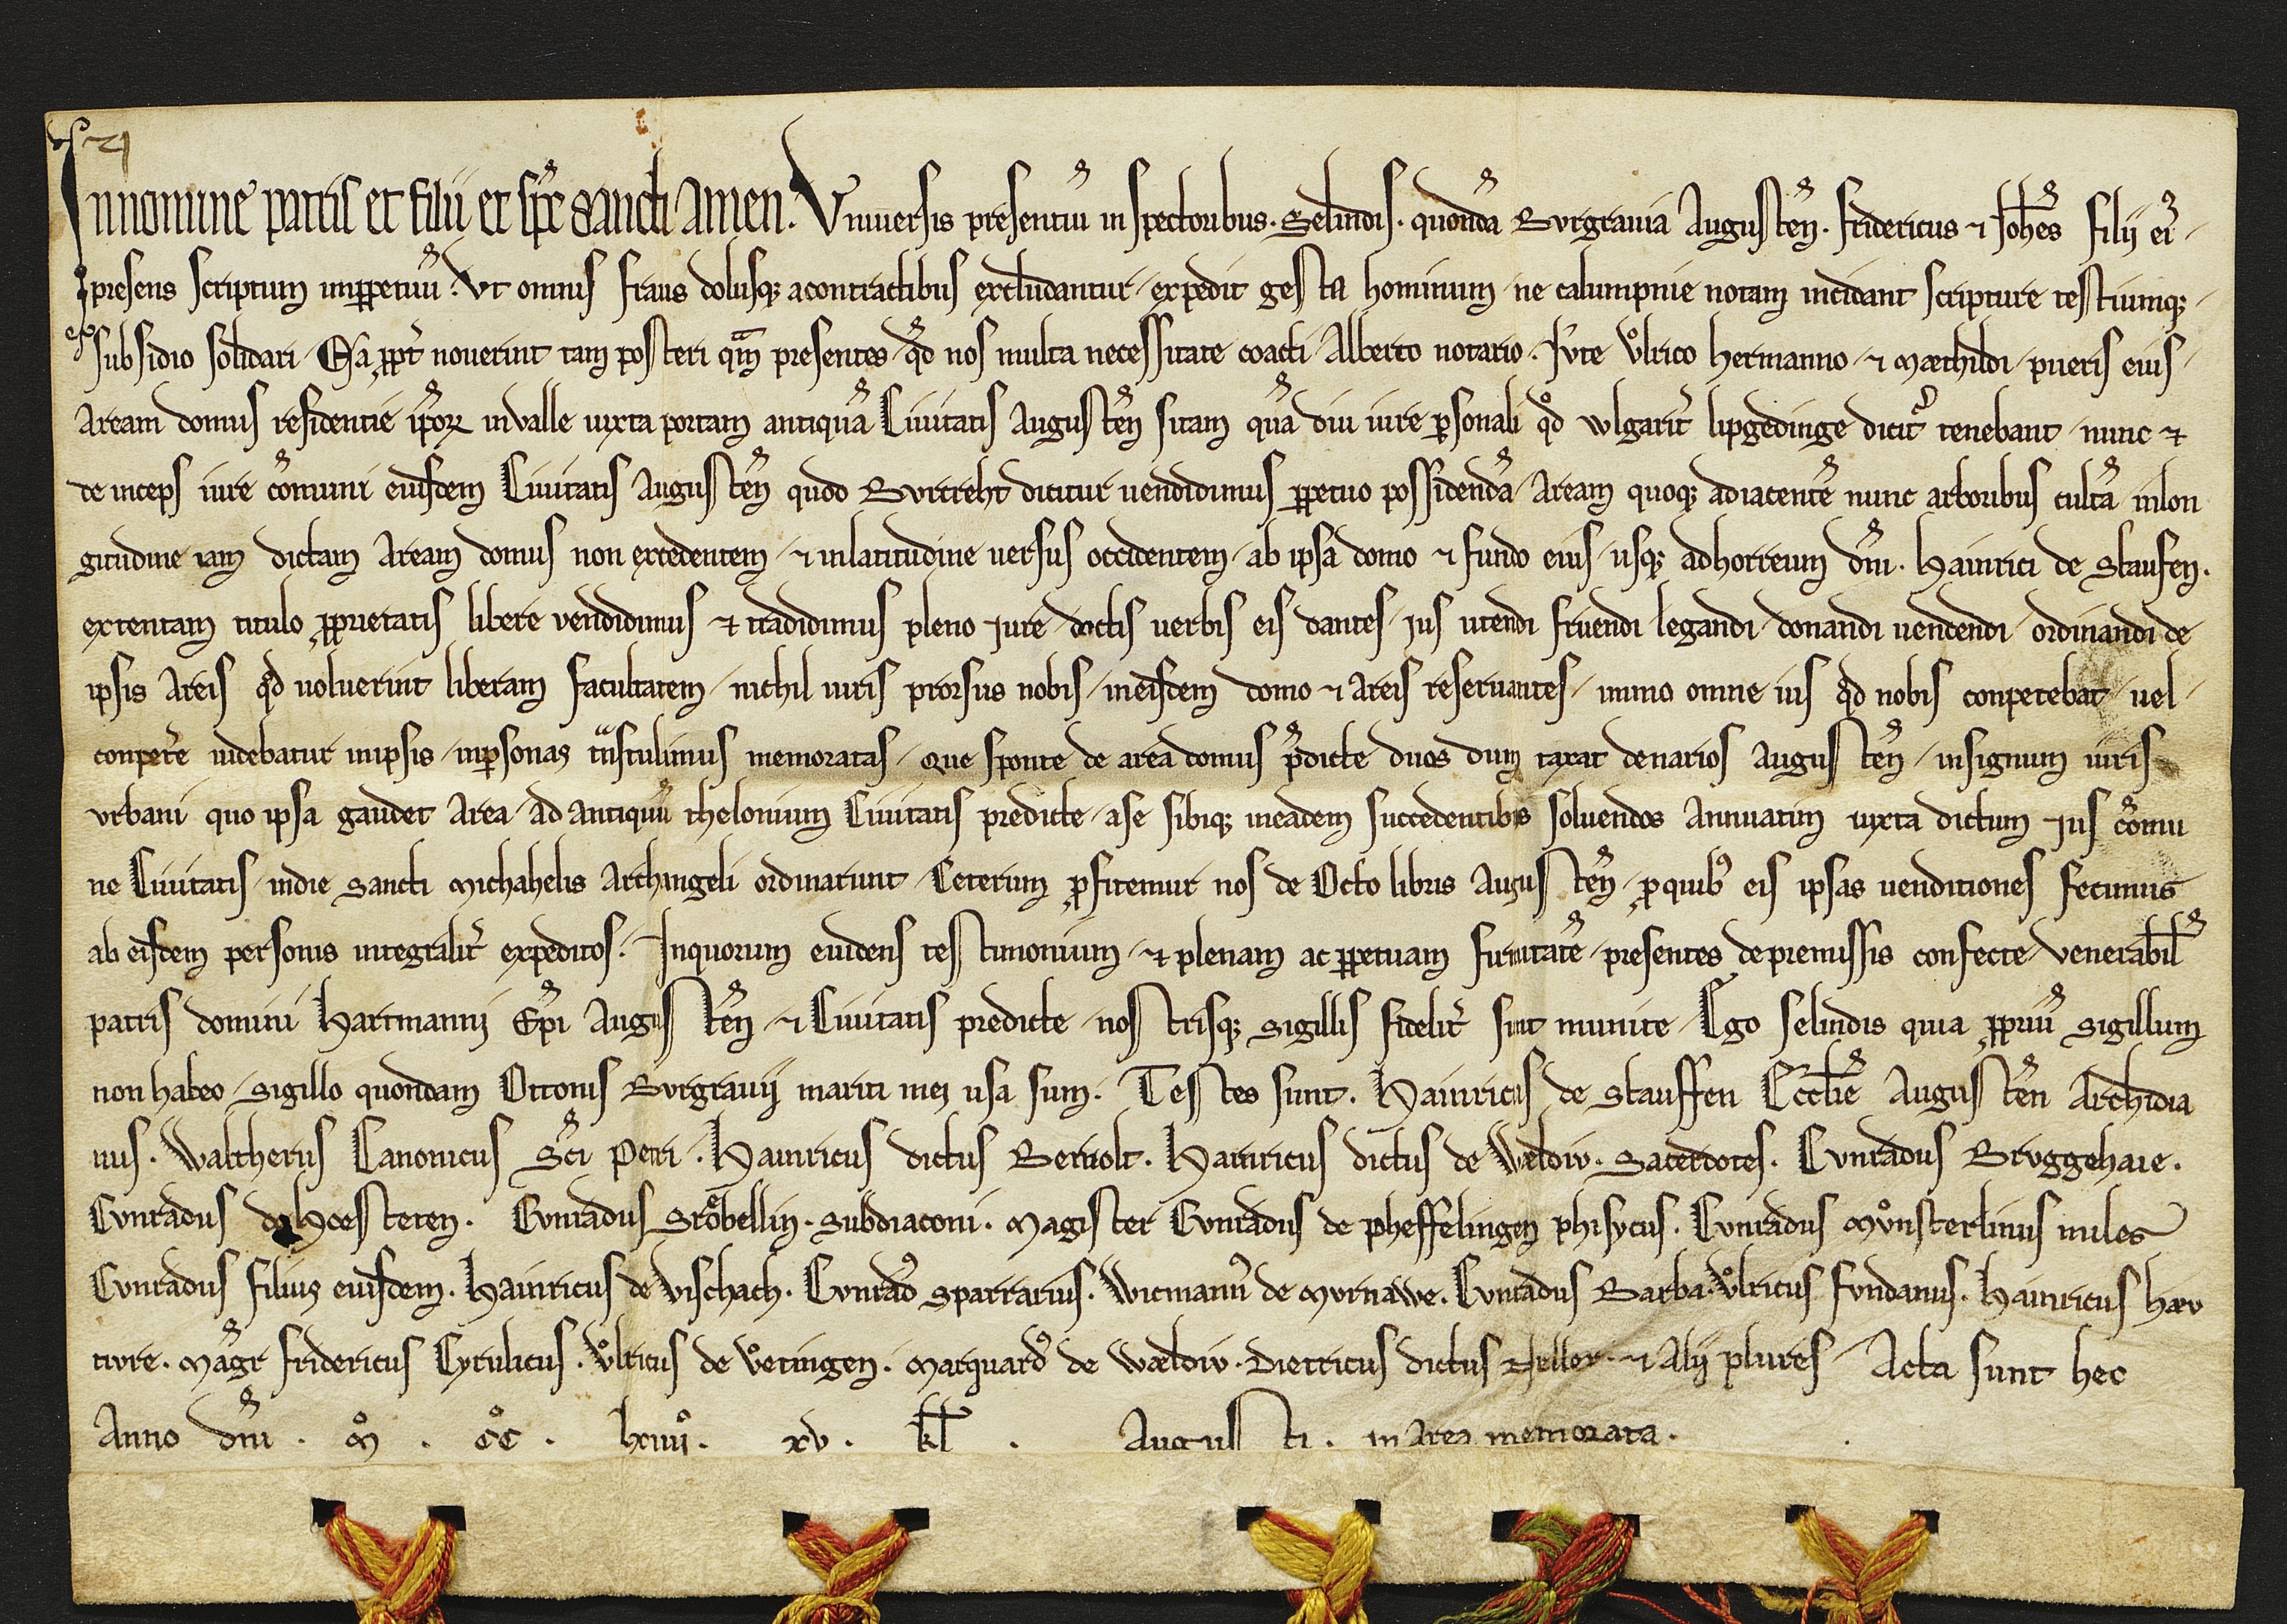 Innomine patris et filii et spc̄ sancti Amen. Vniuersis presentiū inspectoribus. Selindis. quondā Burgrauia Augustēn. Fridericus ⁊ Joh̄es filij eiꝰ
presens scriptum inꝑpetuū. Vt omnis fraus dolusqꝫ acontractibus excludantur / expedit gesta hominum / ne calumpnie notam incidant scripture testiumqꝫ /
subsidio solidari / Ea ꝓpt̄ nouerint tam posteri qm̄ presentes / qd̄ nos multa necessitate coacti / Alberto notario. Jvte vͦlrico hermanno / ⁊ Mæchildi / pueris eius /
Aream domus residentie ip̄oꝝ invalle iuxta portam antiquā Ciuitatis Augustēn sitam quā diu iure ꝑsonali qd̄ wlgarit̄ lipgedinge dicit᷑ tenebant / nunc ⁊
de inceps iure cōmuni eiusdem Ciuitatis Augustēn quod Bvrcreht dicitur uendidimus ꝑpetuo possidendā / Aream quoqꝫ adiacentē nunc arboribus cultā inlon
gitudine iam dictam Aream domus non excedentem / ⁊ inlatitudine uersus occidentem / ab ipsa domo ⁊ fundo eius / usqꝫ adhorreum dn̄i. Hainrici de Staufen.
extentam titulo ꝓprietatis libere vendidimus ⁊ tradidimus pleno Iure / doctis uerbis eis dantes / ius utendi fruendi legandi / donandi uendendi / ordinandi de
ipsis Areis qd̄ uoluerint liberam facultatem / nichil iuris prorsus nobis / ineisdem domo ⁊ areis reseruantes / immo omne ius qd̄ nobis conpetebat / uel /
conpet̄e uidebatur inipsis / inꝑsonas tͣnstulimus memoratas / Que sponte de area domus p̄dicte duos dum taxat denarios Augustēn / insignum iuris
vrbani quo ipsa gaudet Area / ad antiquū thelonium Ciuitatis predicte / ase sibiqꝫ ineadem succedentibus soluendos Annuatim iuxta dictum ius cōmu
ne Ciuitatis / indie Sancti Michahelis Archangeli ordinarunt / Ceterum ꝓfitemur nos de Octo libris Augustēn / ꝓquibꝰ eis ipsas uenditiones fecimus
ab eisdem personis integralit̄ expeditos. Inquorum euidens testimonium / ⁊ plenam ac ꝑpetuam firmitatē / presentes depremissis confecte / venerabil̄
patris domini Hartmanni Ep̄i Augustēn / ⁊ Ciuitatis predicte / nostrisqꝫ sigillis fidelit̄ sint munite / Ego Selindis quia ꝓpriū sigillum
non habeo / sigillo quondam Ottonis Bvrgrauij mariti mei usa sum. Testes sunt. Hainricus de Stauffen Eccl̄ie Augustēn Archidia
nus. Waltherus Canonicus Sc̄i Petri. Hainricus dictus Beriolt. Hainricus dictus de Wældiv. Sacerdotes. Cvnradus Brvggehaie.
Cvnradus de Hoesteren. Cvnradus Ströbellin. Subdiaconi. Magister Cvnradus de Pheffelingen phisycus. Cvnradus Mvͦnsterlinus miles
Cvnradus filius eiusdem. Hainricus de Vischach. Cvnradꝰ Sparrarius. Wicmannꝰ de Mvrnawe. Cvnradus Barba. Vͦlricus Fvndanus. Hainricus hær
twre. Magr̄ Fridericus Cyrulicus. Vͦlricus de Vͦeringen. Marquardꝰ de Wældiv. Dietricus dictus Zeller. ⁊ Alij plures / Acta sunt hec
Anno dn̄i. Mͦ. CͦC. lxiiiiͦ. xv. kl̄. Augusti. in area memorata.